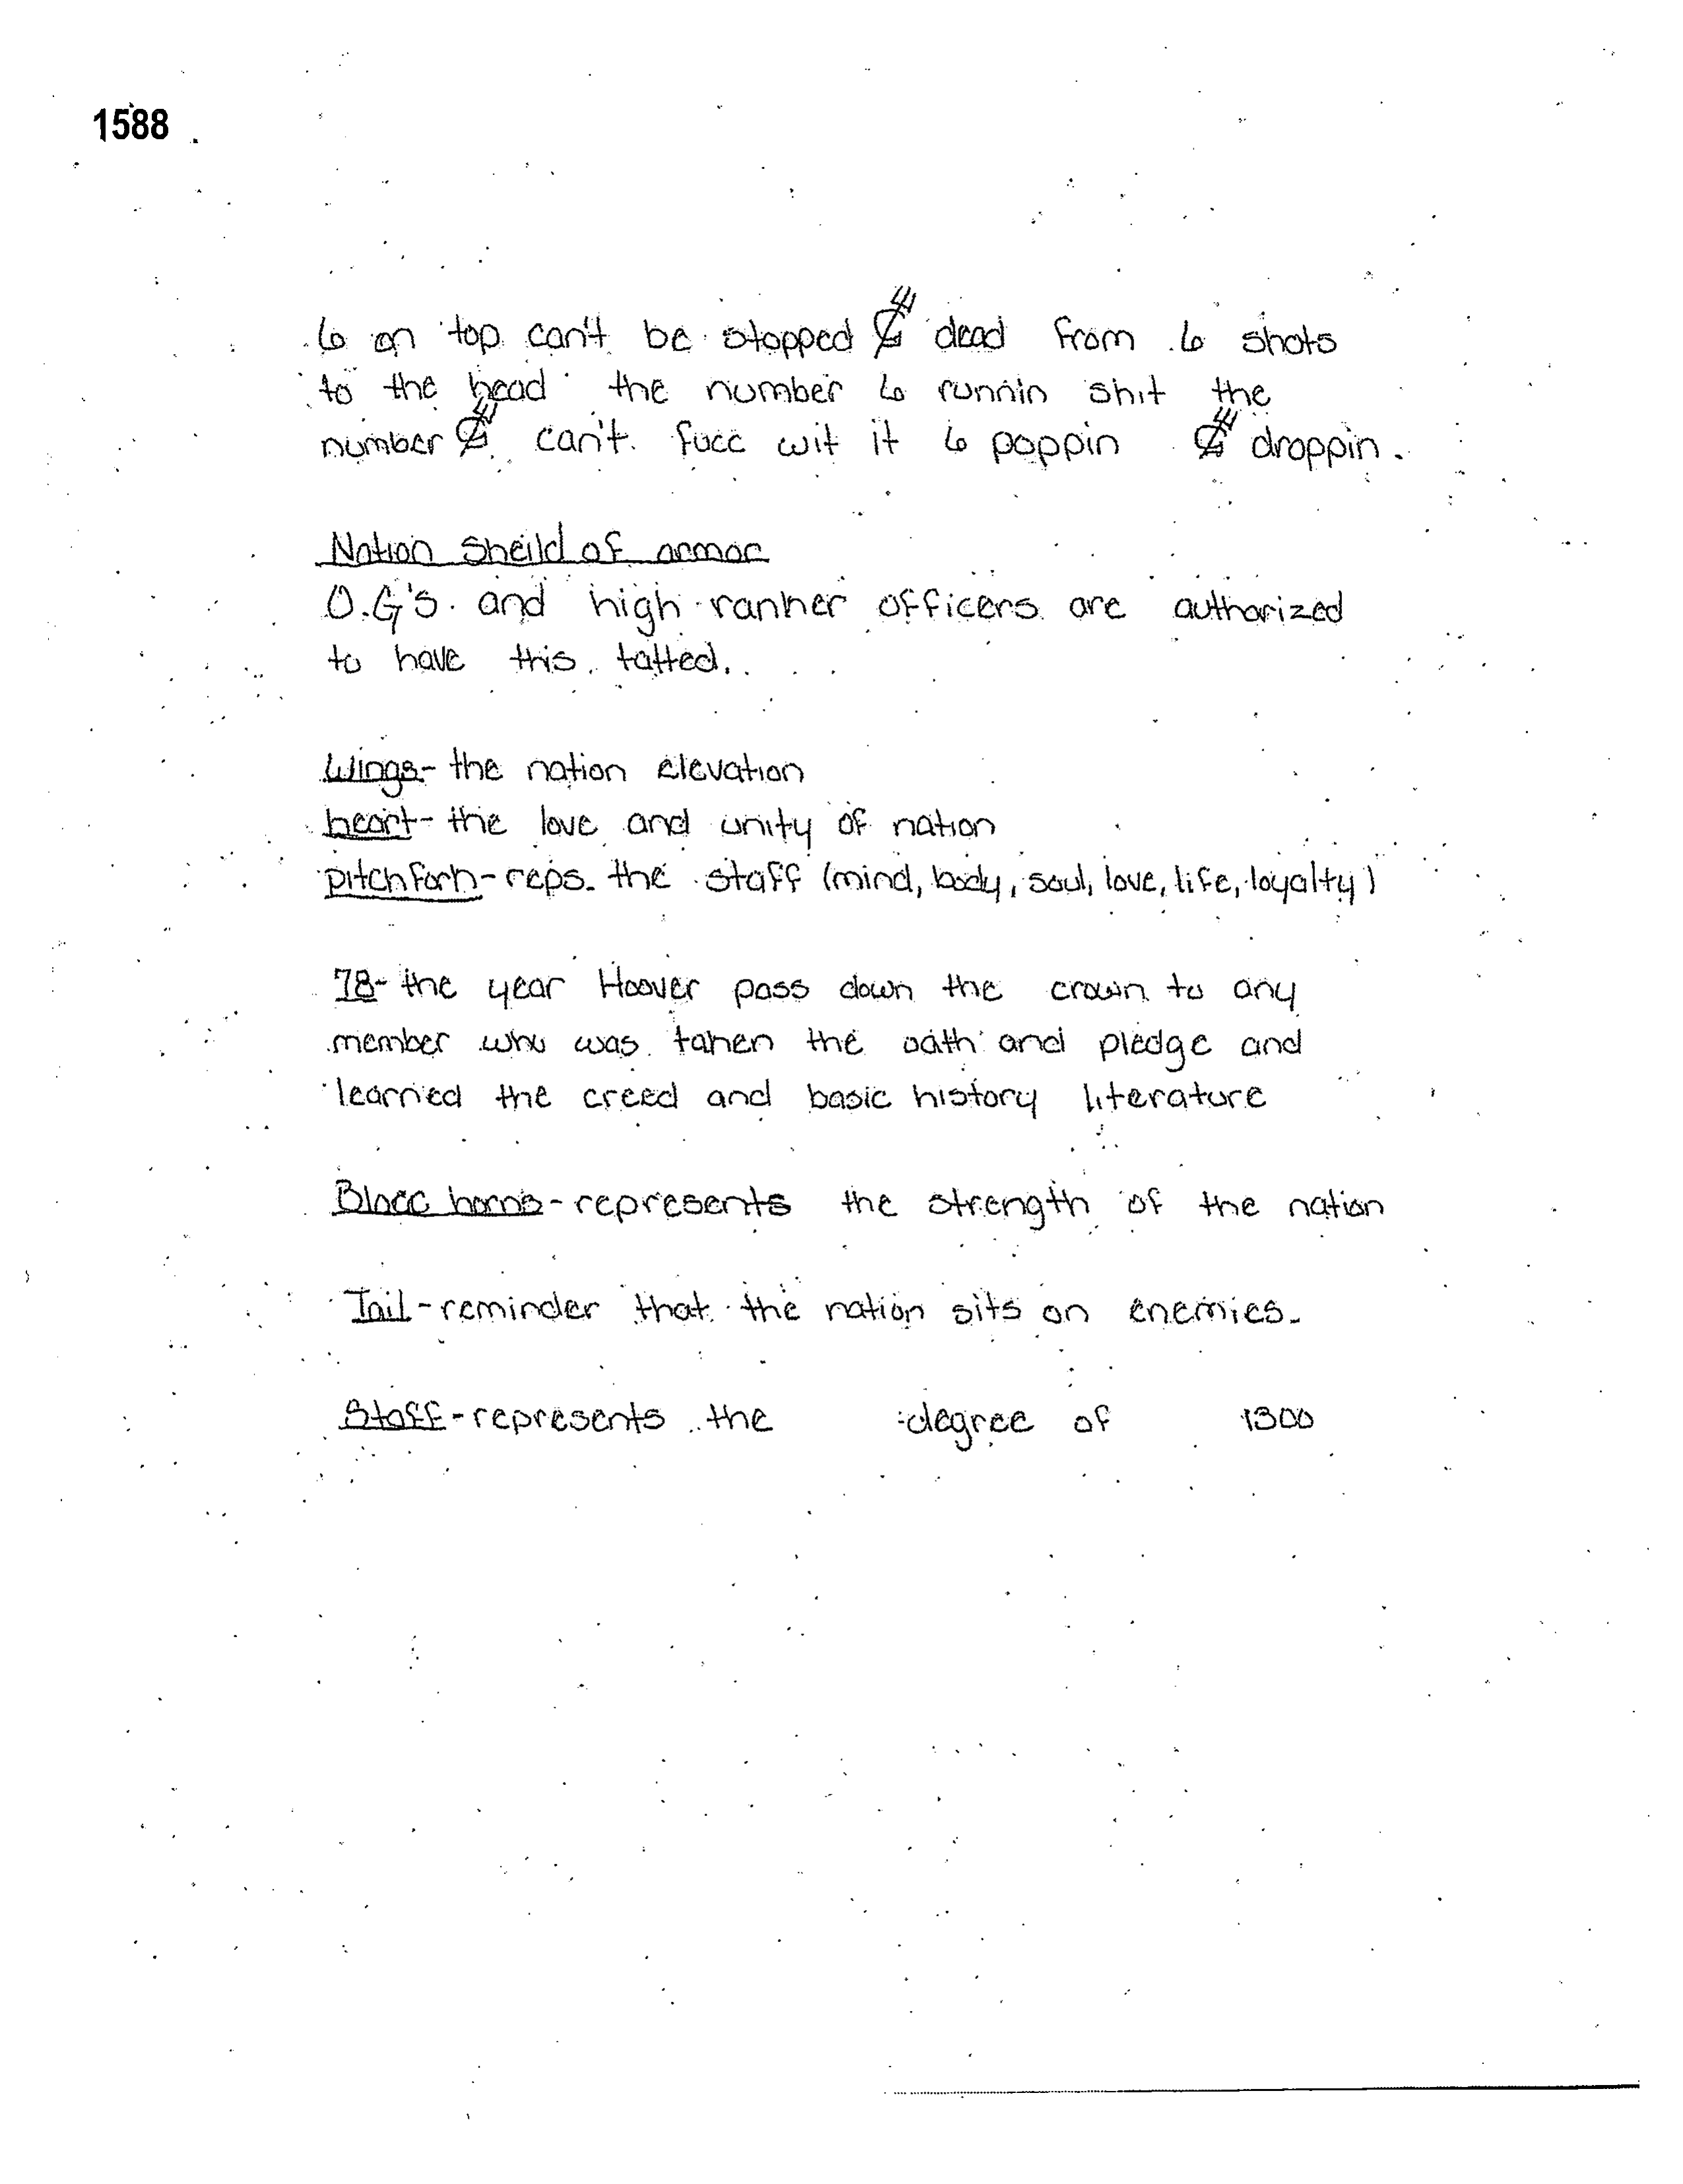 1588
6 on top can't be stopped dead from 6 shots
to the head the number 6 runnin shit the
number can't fucc wit it 6 poppin droppin.
Nation sheild of armor
O.G's. and high ranher officers are authorized
to have this tatted.
Wings- the nation elevation
heart- the love and unity of nation
pitchforh- reps. the staff (mind, body, soul, love, life, loyalty)
78- the year Hoover pass down the crown to any
member who was tahen the oath and pledge and
learned the creed and basic history literature
Blacc horns - represents the strength of the nation
Tail - reminder that the nation sits on enemies.
Staff - represents the degree of 1300